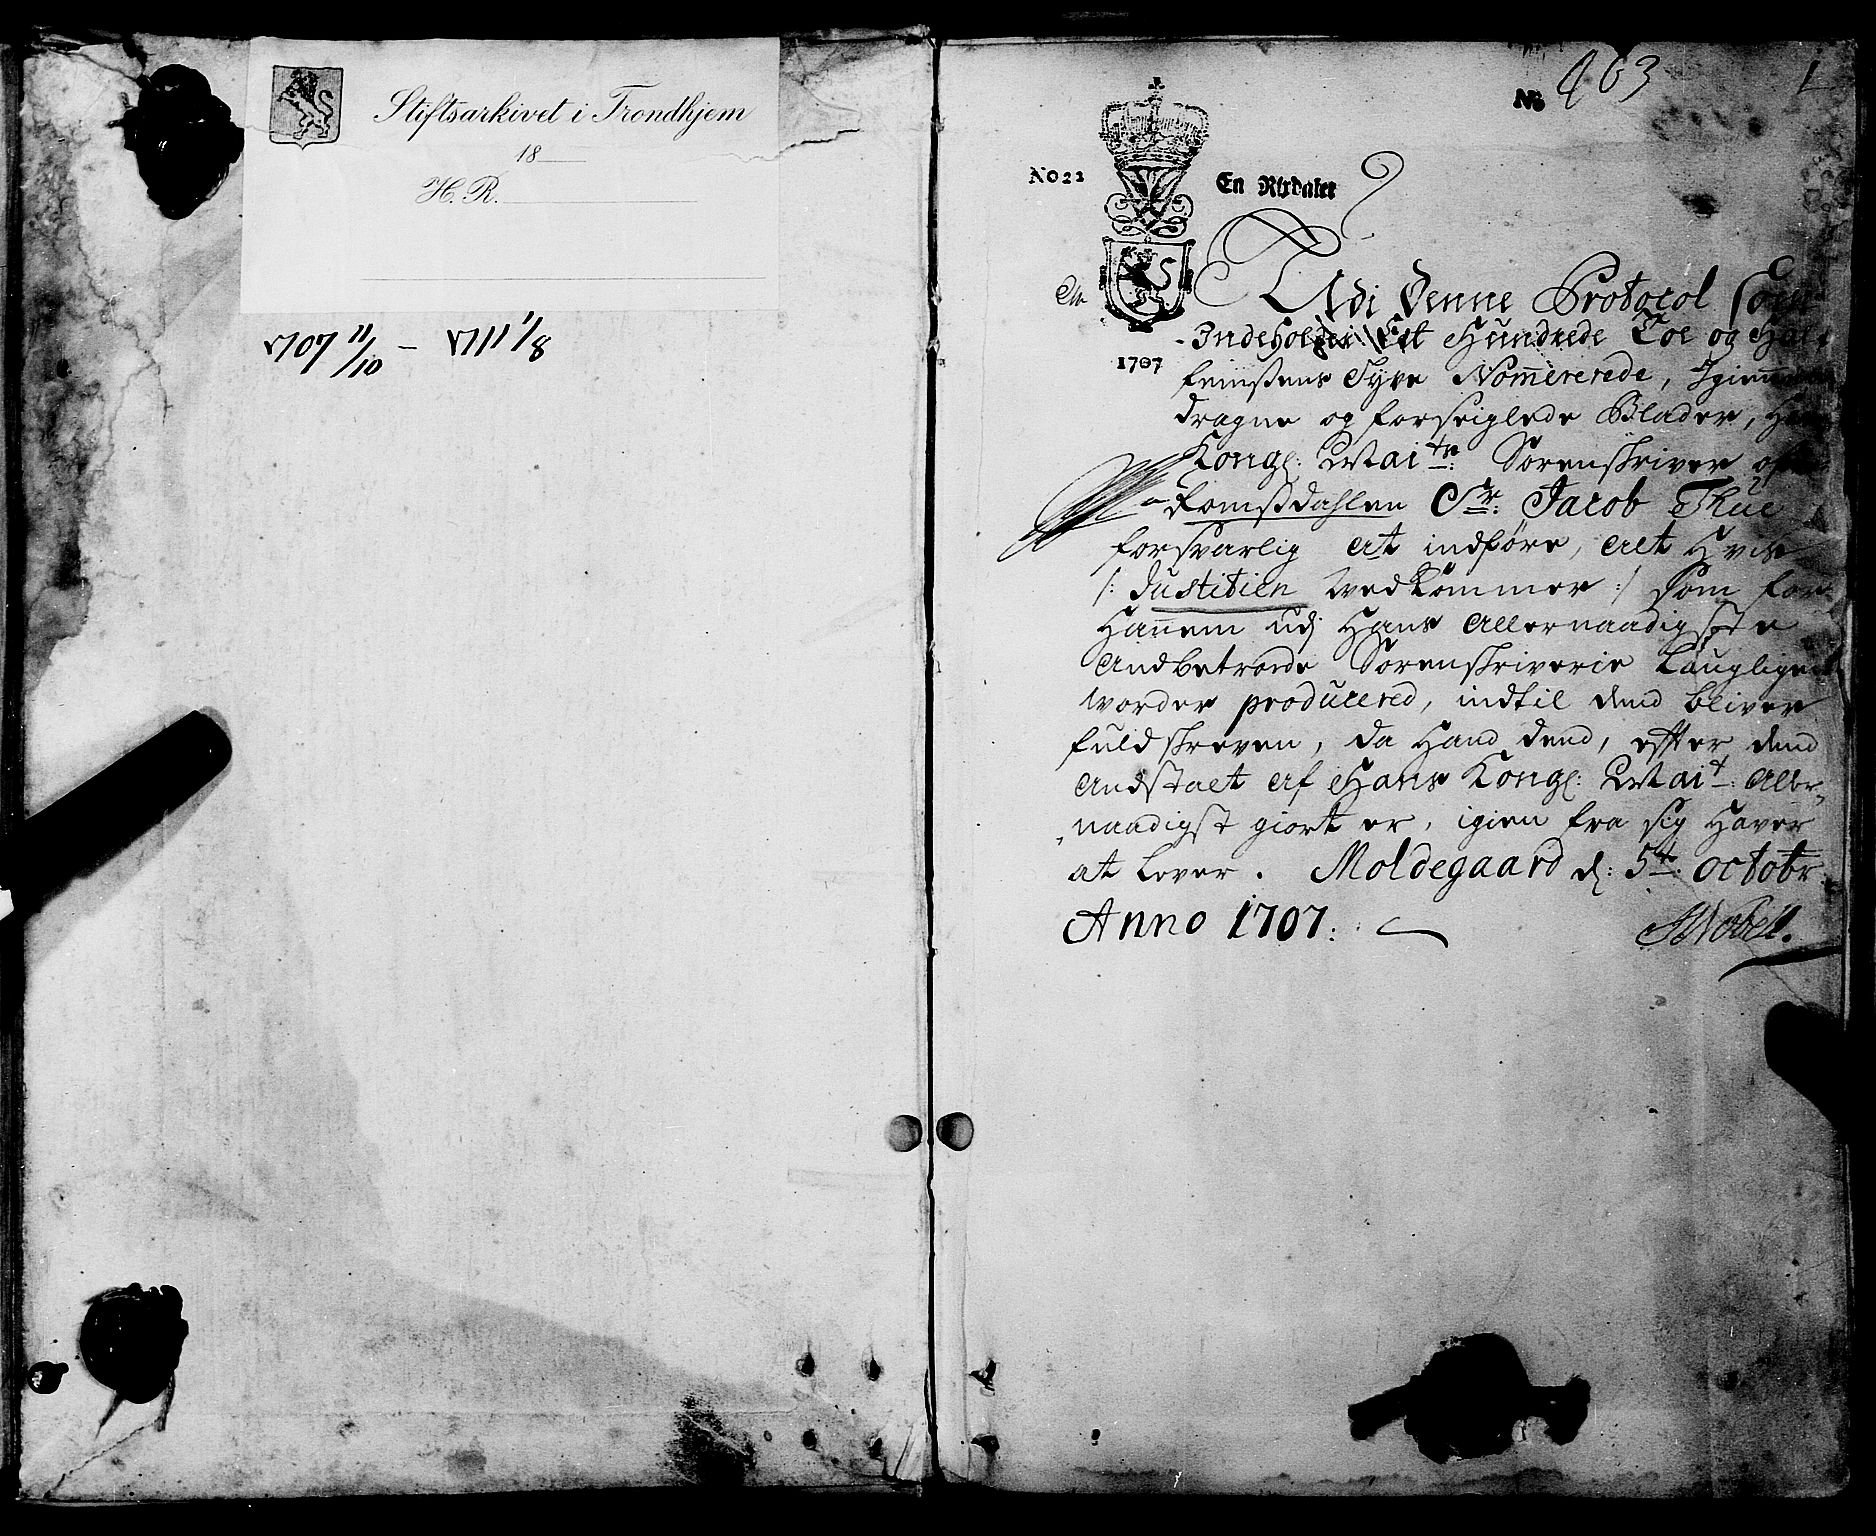 Stiftsarkivet i Trondhjem
18
H. R.
1707 11/10 — 1711 1/8
No 463
1
No 22
En Rixdaler
1707
Udi denne Protocol som
Indeholder Et Hundrede Toe og Hal
femtesens Tyve Nom̅ererede, Igien̅em
dragne og forseiglede Blader, Ha
Kongl: Maits: Sorenskriver ofr
Romsdahlen Sr: Jacob Thue
forsvarlig at indføre, alt hvis
/: Justitien vedkommer :/ som for
Han̅em udj Hans Allernaadigste
Anbetroede Sorenskriverie laugligen
vorder produceret, indtil dend bliver
fuldskreven, da Hand dend, efter dend
Andstalt af Hans Kongl: Mait: Aller
naadigst giort er, igien fra sig haver
at lever. Moldegaard d: 5te: octobr
Anno 1707: